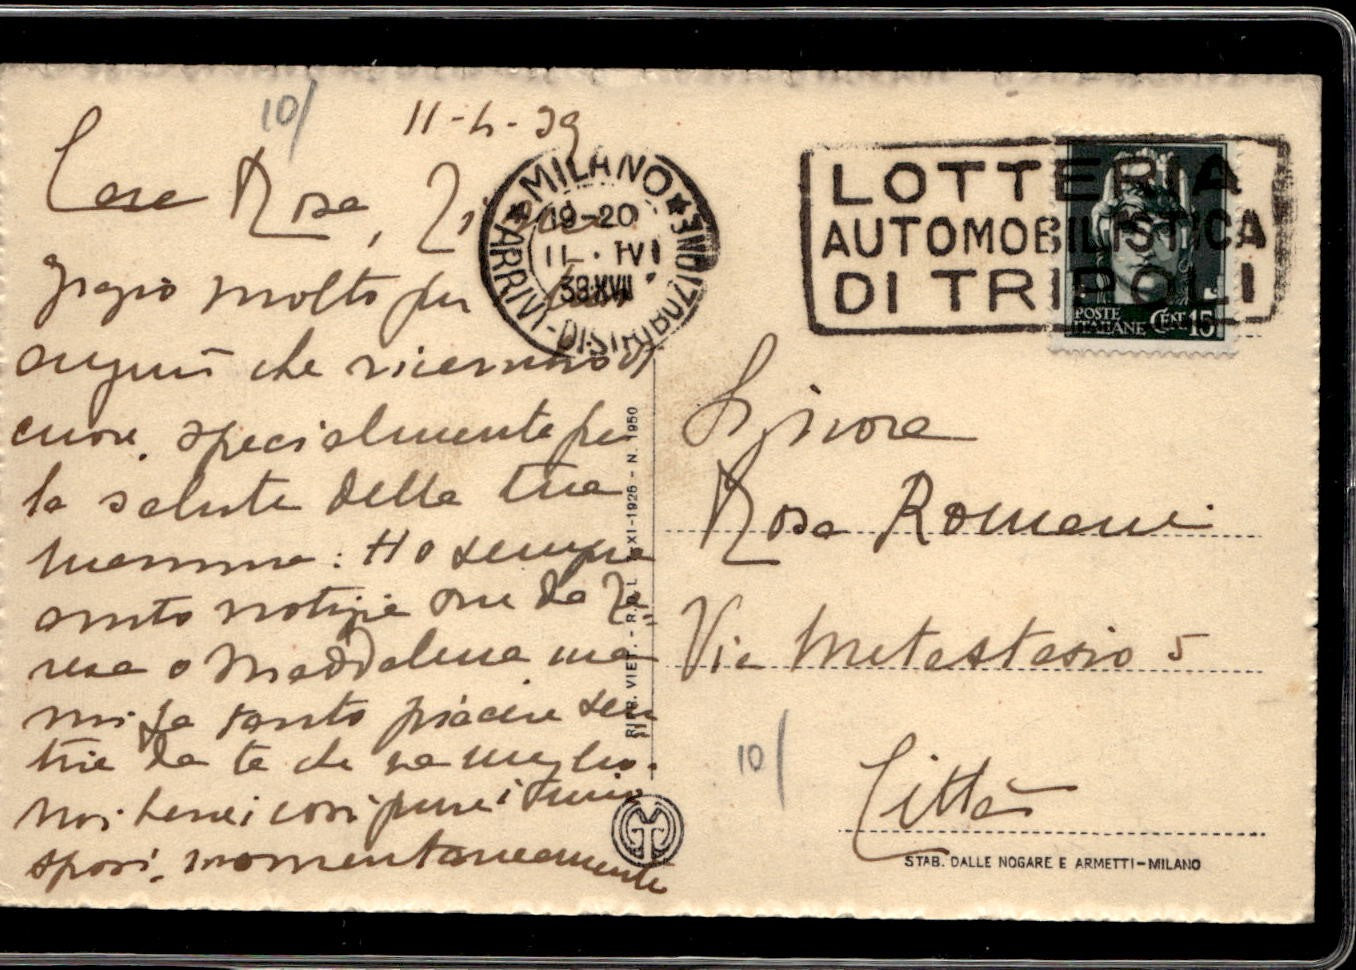 10/
11-4-39
Cara Rosa, Ti
grazio molto per gli
auguri che ricambio di
cuore, specialmente per
la salute della tua
mamma: Ho sempre
avuto notizie ora da Te-
resa o Maddalena ma
mi fa tanto piacere sen
tire da te che va meglio.
Noi bene; così pure i miei
sposi, momentaneamente
MILANO
19-20
11·IV
39 XVII
ARRIVI-DISTRIBUZIONE
LOTTERIA
AUTOMOBILISTICA
DI TRIPOLI
POSTE
ITALIANE CENT 15
RIPR. VIET. - XXI-1925 - N. 1950
Signora
Rosa Romani
Via Metastasio 5
10/
Città
STAB. DALLE NOGARE E ARMETTI-MILANO